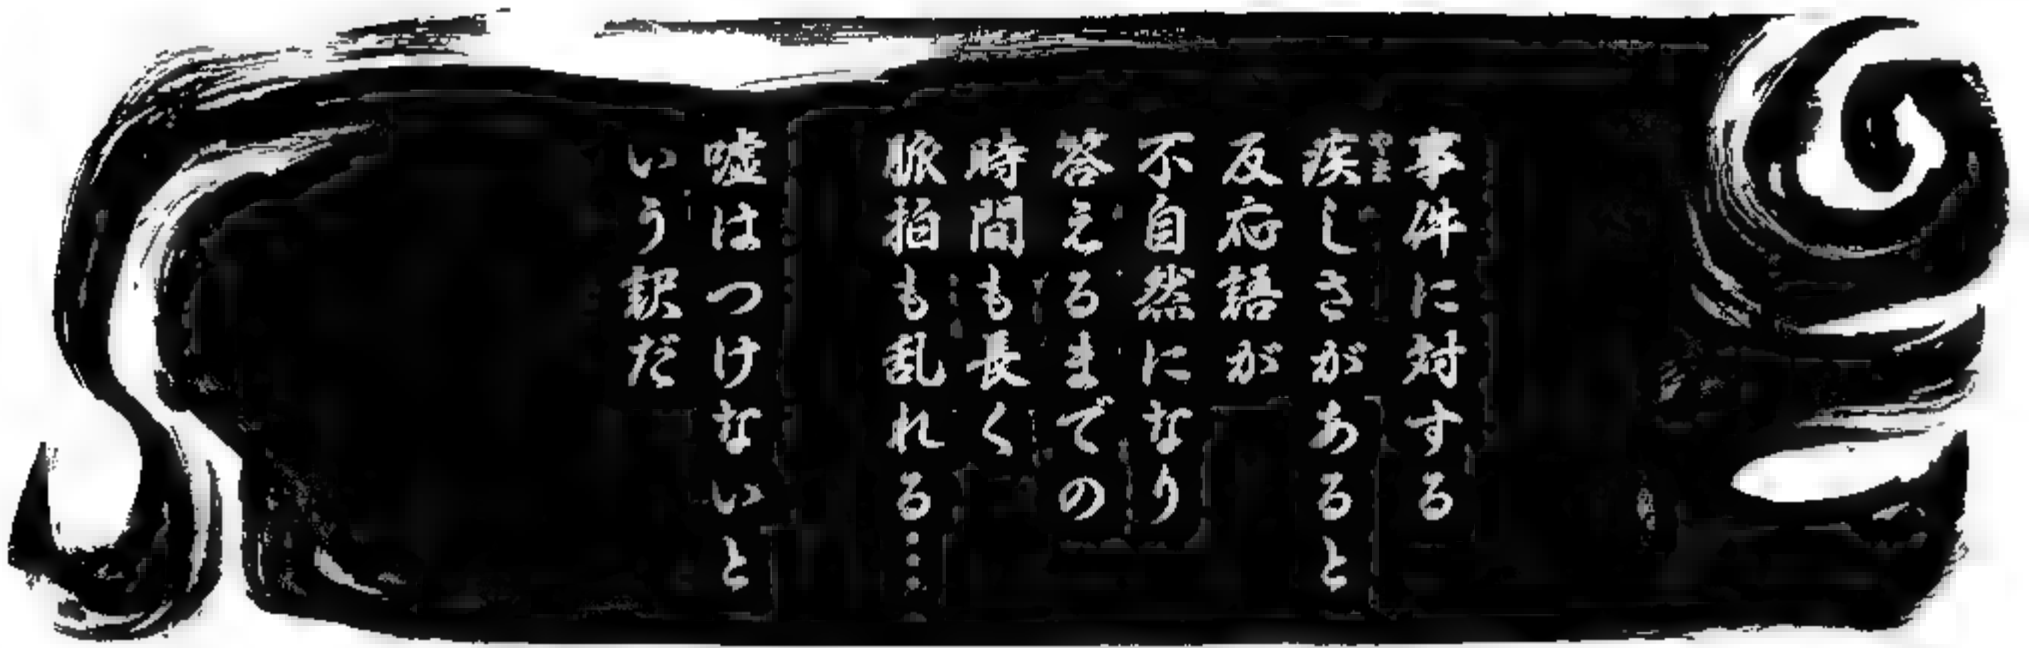 事件に対する
疾しさがあると
反応語が
不自然になり
答えるまでの
時間も長く
脈拍も乱れる……
嘘はつけないと
いう訳だ